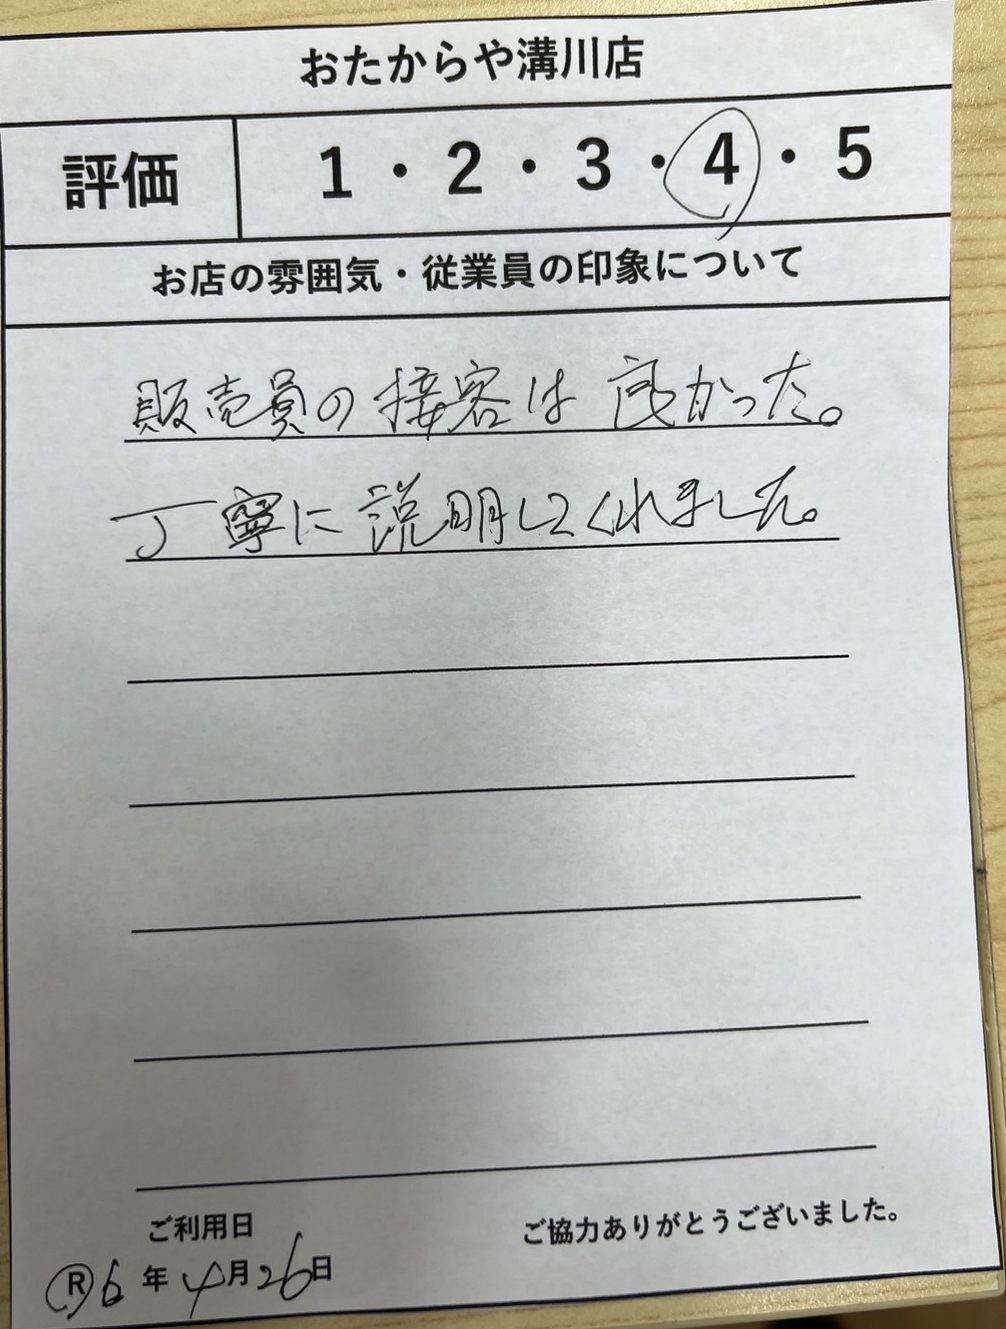 おたからや溝川店
評価 1・2・3・4・5
お店の雰囲気・従業員の印象について
販売員の接客は良かった。
丁寧に説明してくれました。
ご利用日
ご協力ありがとうございました。
R6年4月26日